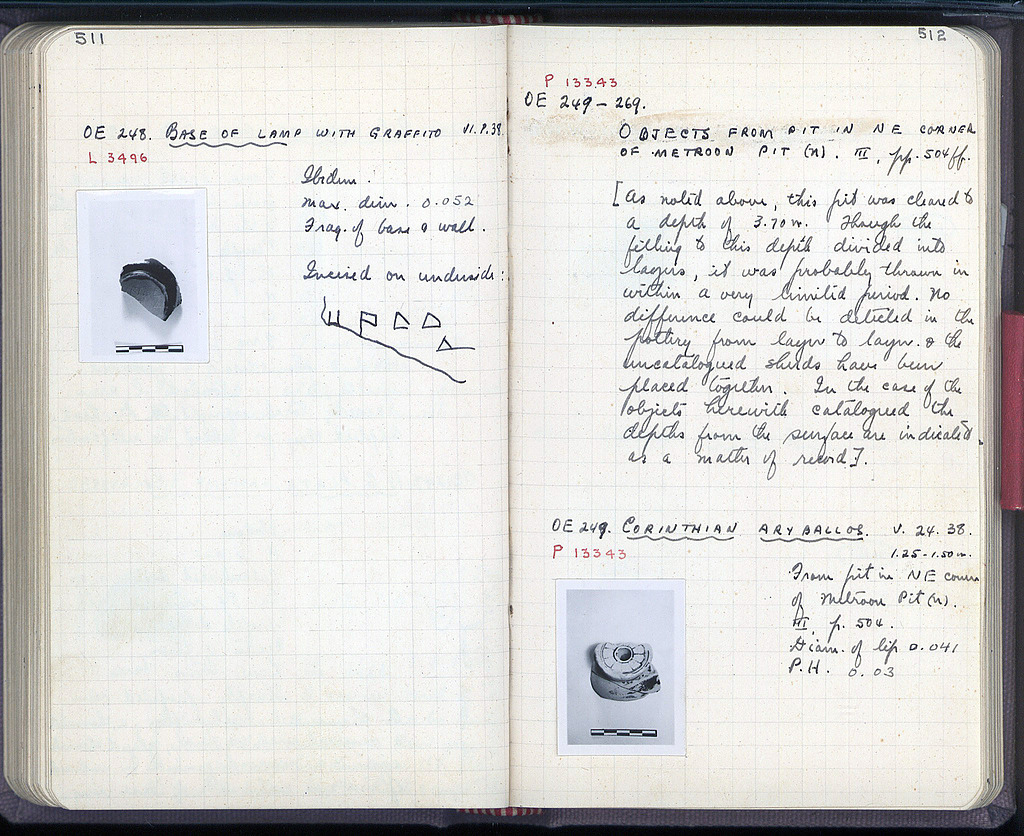 511
OE 248. BASE OF LAMP WITH GRAFFITO VI.9.38
L 3496
Ibidem.
max. dim. 0.052
Frag. of base & wall.
Incised on underside:
512
P 13343
OE 249 - 269.
OBJECTS FROM PIT IN NE CORNER
OF METROON PIT (N). III, pp. 504 ff.
[As noted above, this pit was cleared to
a depth of 3.70 m. Though the
filling to this depth divided into
layers, it was probably thrown in
within a very limited period. No
difference could be detected in the
pottery from layer to layer. & the
uncatalogued sherds have been
placed together. In the case of the
objects herewith catalogued the
depths from the surface are indicated
as a matter of record].
OE 249. CORINTHIAN ARYBALLOS. V. 24. 38.
P 13343
1.25-1.50 m.
From pit in NE corner
of Metroon Pit (N).
III, p. 504.
Diam. of lip 0.041
P.H. 0.03